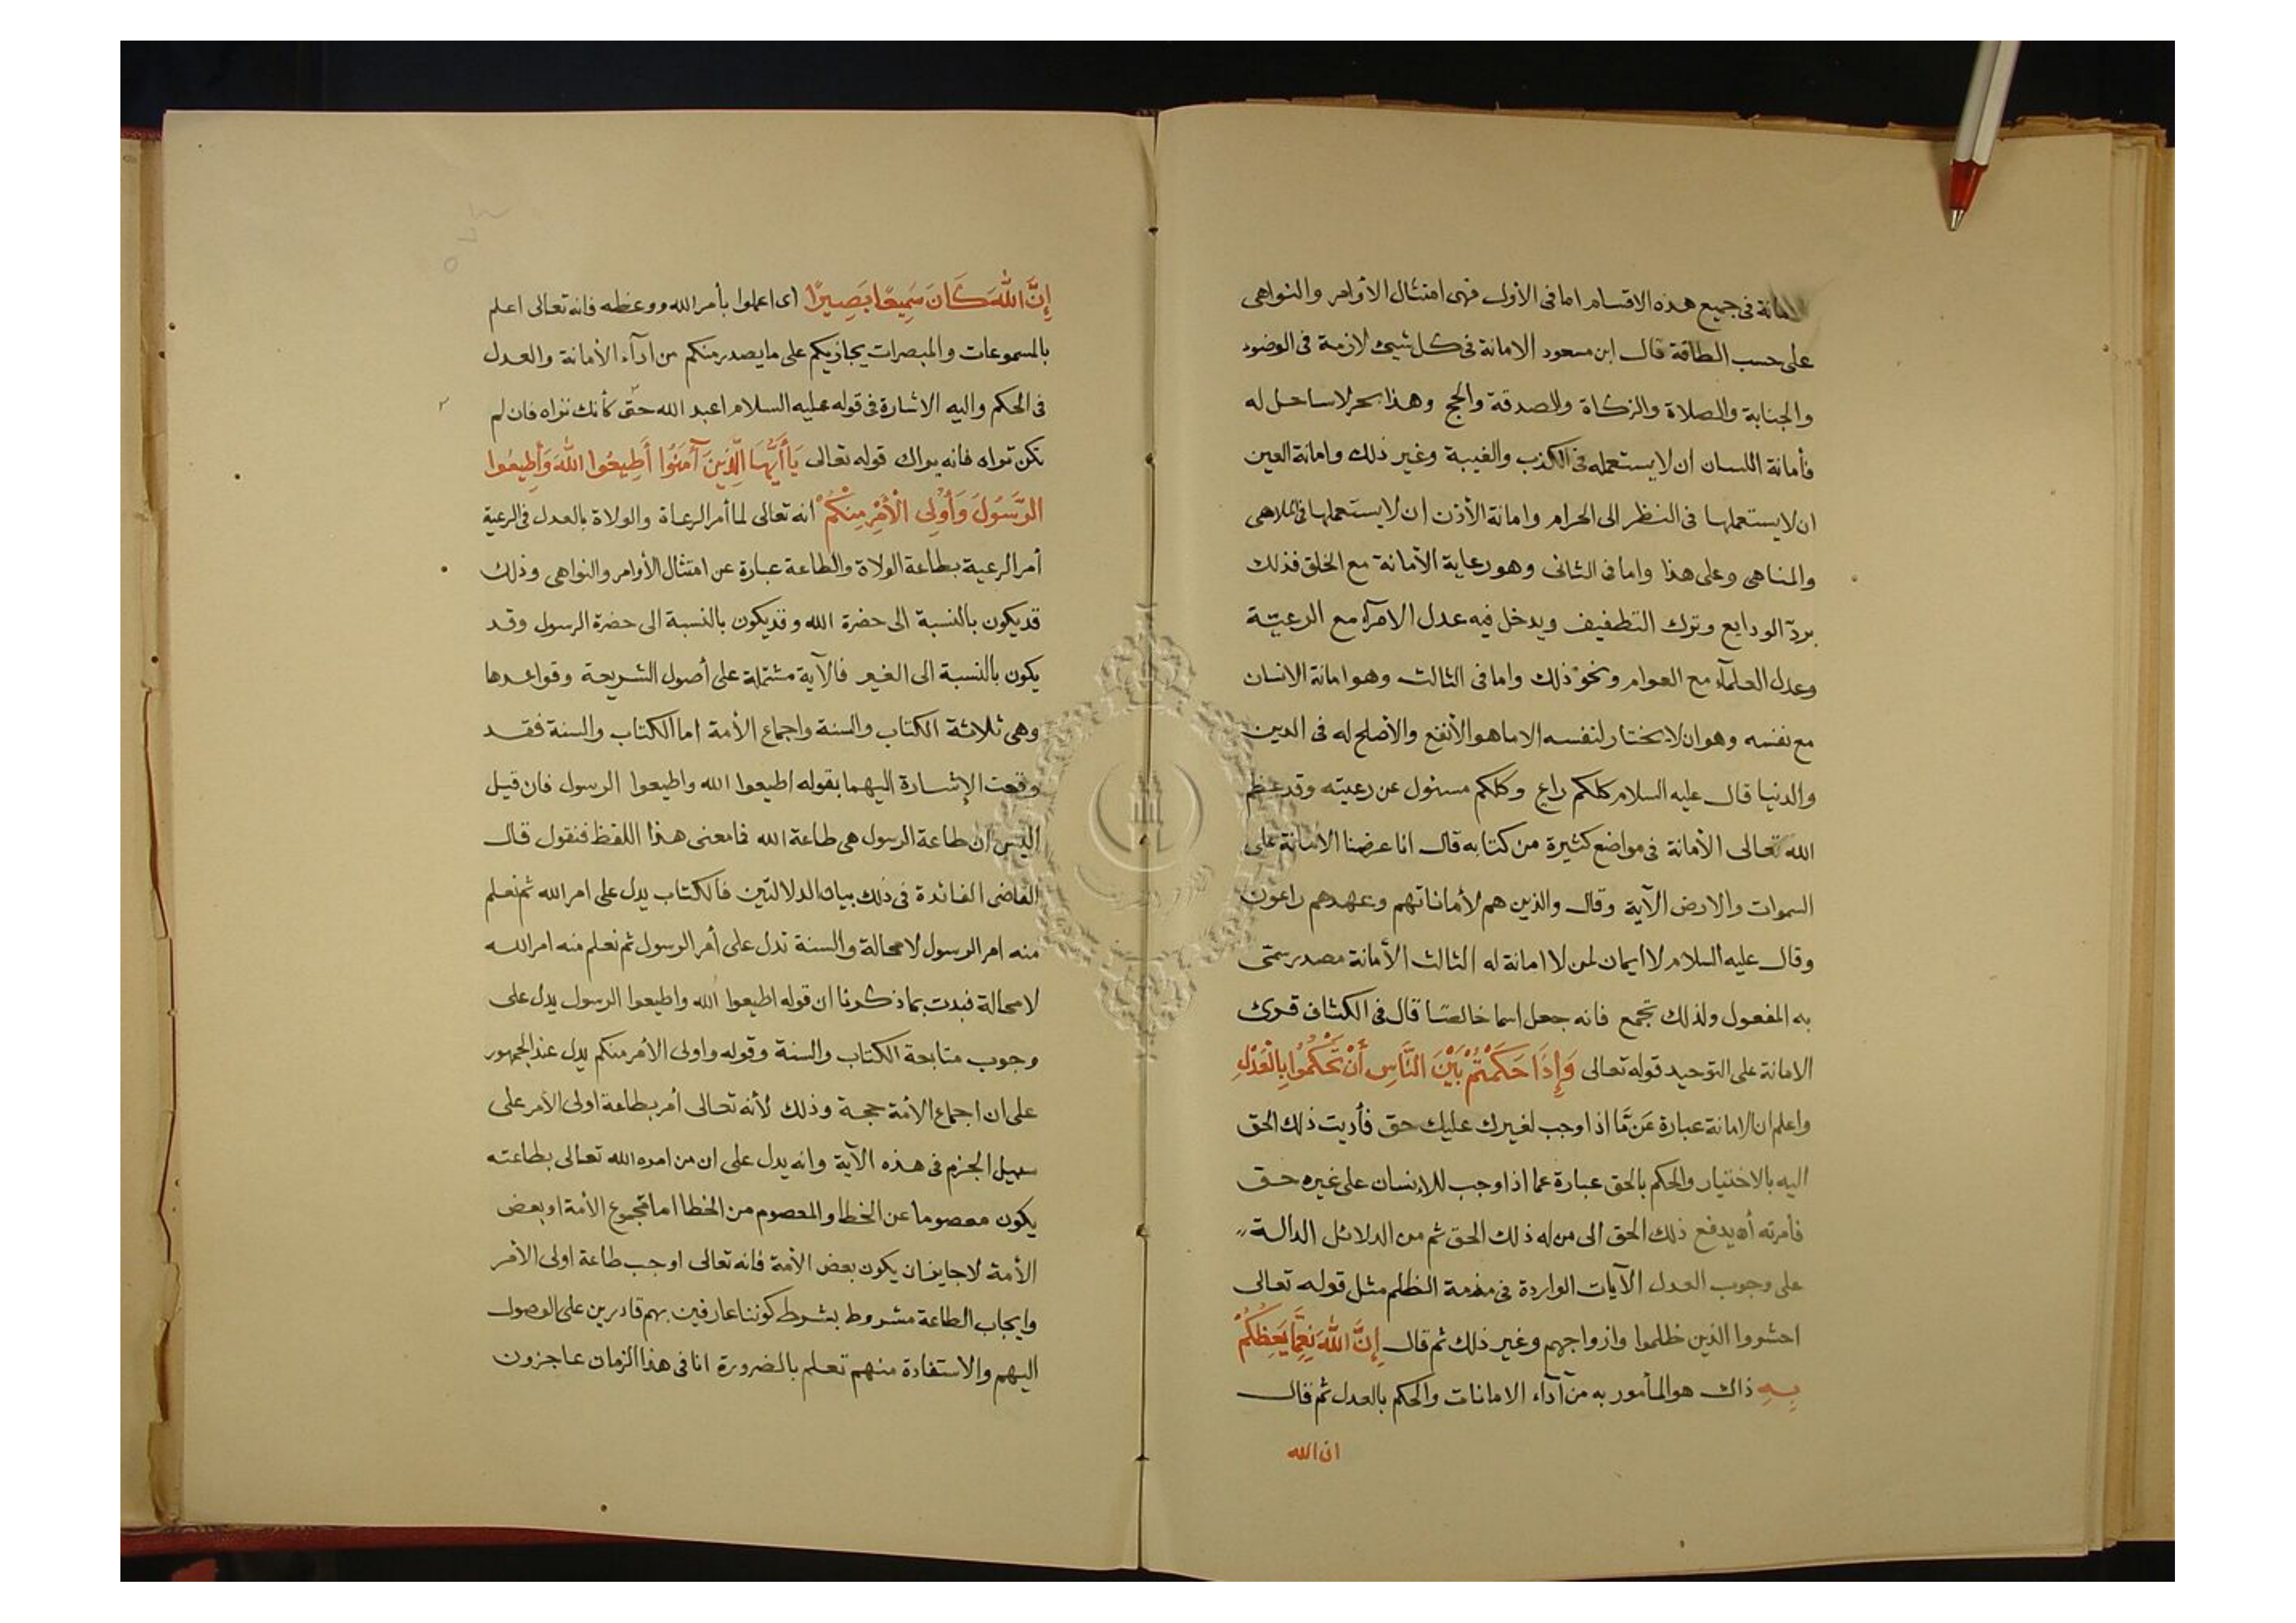 الامانة فى جميع هذه الاقسام اما فى الأول فهى امتثال الأوامر والنواهى
على حسب الطاقة قال ابن مسعود الامانة فى كل شيئ لازمة فى الوضوء
والجنابة والصلاة والزكاة والصدقة والحج وهذا بحر لا ساحل له
فأمانة اللسان ان لا يستعمله فى الكذب والغيبة وغير ذلك وامانة العين
ان لا يستعملها فى النظر الى الحرام وامانة الأذن ان لا يستعملها فى الملاهى
والمناهى وعلى هذا واما فى الثانى وهو رعاية الأمانة مع الخلق فذلك
بردّ الودايع وترك التطفيف ويدخل فيه عدل الامرآء مع الرعيّة
وعدل العلمآء مع العوام ونحو ذلك واما فى الثالث وهو امانة الانسان
مع نفسه وهو ان لا يختار لنفسه الا ما هو الأنفع والأصلح له فى الدين
والدنيا قال عليه السلام كلكم راع وكلكم مسئول عن رعيته وقد عظم
الله تعالى الأمانة فى مواضع كثيرة من كتابه قال انا عرضنا الأمانة على
السموات والارض الآية وقال والذين هم لأماناتهم وعهدهم راعون
وقال عليه السلام لا ايمان لمن لا امانة له الثالث الأمانة مصدر سمّى
به المفعول ولذلك تجمع فانه جعل اسما خالصا قال فى الكشاف قرئ
الامانة على التوحيد قوله تعالى وَإِذَا حَكَمْتُمْ بَيْنَ النَّاسِ أَنْ تَحْكُمُوا بِالْعَدْلِ
واعلم ان الامانة عبارة عَن مَّا اذا وجب لغيرك عليك حق فأديت ذلك الحق
اليه بالاختيار والحكم بالحق عبارة عما اذا وجب للإنسان على غيره حق
فأمرته أن يدفع ذلك الحق الى من له ذلك الحق ثم من الدلائل الدالة
على وجوب العدل الآيات الواردة فى مذمة الظلم مثل قوله تعالى
احشروا الذين ظلموا وازواجهم وغير ذلك ثم قال إِنَّ اللهَ نِعِمَّا يَعِظُكُمْ
بِهِ ذاك هو المأمور به من آدآء الامانات والحكم بالعدل ثم قال
ان الله
إِنَّ اللهَ كَانَ سَمِيعًا بَصِيرًا اى اعملوا بأمر الله ووعظه فانه تعالى اعلم
بالمسموعات والمبصرات يجازيكم على ما يصدر منكم من ادآء الأمانة والعدل
فى الحكم واليه الاشارة فى قوله عليه السلام اعبد الله حتى كأنك تراه فان لم
تكن تراه فانه يراك قوله تعالى يَا أَيُّهَا الَّذِينَ آمَنُوا أَطِيعُوا اللهَ وَأَطِيعُوا
الرَّسُولَ وَأُولِى الْأَمْرِ مِنْكُمْ انه تعالى لما أمر الرعاة والولاة بالعدل فى الرعية
أمر الرعية بطاعة الولاة والطاعة عبارة عن امتثال الأوامر والنواهى وذلك
قد يكون بالنسبة الى حضرة الله وقد يكون بالنسبة الى حضرة الرسول وقد
يكون بالنسبة الى الغير فالآية مشتملة على أصول الشريعة وقواعدها
وهى ثلاثة الكتاب والسنة واجماع الأمة اما الكتاب والسنة فقد
وقعت الإشارة اليهما بقوله اطيعوا الله واطيعوا الرسول فان قيل
اليس ان طاعة الرسول هى طاعة الله فما معنى هذا اللفظ فنقول قال
القاضى الفائدة فى ذلك بيان الدلالتين فالكتاب يدل على امر الله ثم نعلم
منه امر الرسول لا محالة والسنة تدل على أمر الرسول ثم نعلم منه امر الله
لا محالة فبدت بما ذكرنا ان قوله اطيعوا الله واطيعوا الرسول يدل على
وجوب متابعة الكتاب والسنة وقوله واولى الأمر منكم يدل عند الجمهور
على ان اجماع الأمة حجة وذلك لأنه تعالى أمر بطاعة اولى الأمر على
سبيل الجزم فى هذه الآية وانه يدل على ان من امره الله تعالى بطاعته
يكون معصوما عن الخطا والمعصوم من الخطا اما مجموع الأمة او بعض
الأمة لا جايز ان يكون بعض الأمة فانه تعالى اوجب طاعة اولى الأمر
وايجاب الطاعة مشروط بشرط كوننا عارفين بهم قادرين على الوصول
اليهم والاستفادة منهم تعلم بالضرورة انا فى هذا الزمان عاجزون